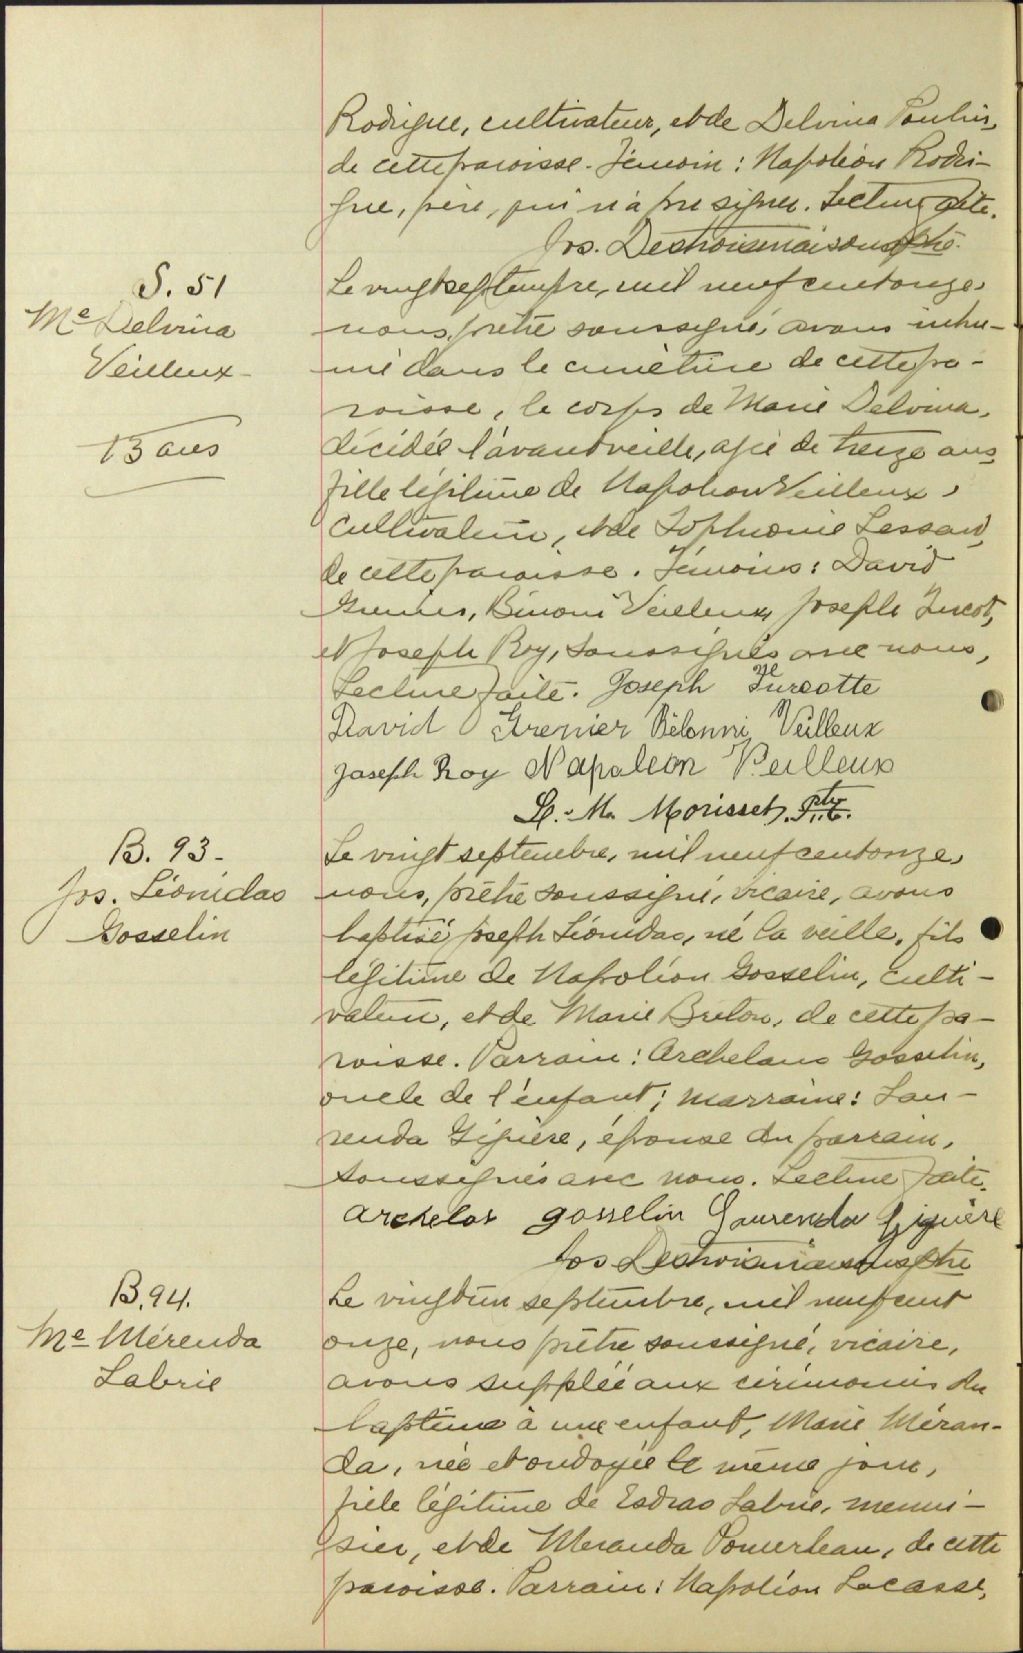 Rodrigue, cultivateur, et de Delvina Poulin,
de cette paroisse. Témoin : Napoléon Rodri-
gue, père, qui n'a pu signer. Lecture faite.
Jos. Destroismaisons ptre.
S. 51
Me Delvina
Veilleux
13 ans
Le vingt septembre, mil neuf cent onze,
nous, prêtre soussigné, avons inhu-
mé dans le cimetière de cette pa-
roisse, le corps de Marie Delvina,
décédée l'avant veille, agée de treize ans,
fille légitime de Napoléon Veilleux,
cultivateur, et de Sophronie Lessard,
de cette paroisse. Témoins : David
Grenier, Bénoni Veilleux, Joseph Turcot,
et Joseph Roy, soussignés avec nous,
Lecture faite. Joseph Turcotte
David Grenier Bélonni Veilleux
Joseph Roy Napoleon Veilleux
L.-M. Morisset. Ptre.
B. 93-
Jos. Léonidas
Gosselin
Le vingt septembre, mil neuf cent onze,
nous, prêtre soussigné, vicaire, avons
baptisé Joseph Léonidas, né la veille, fils
légitime de Napoléon Gosselin, culti-
vateur, et de Marie Breton, de cette pa-
roisse. Parrain : Archelaus Gosselin,
oncle de l'enfant ; marraine : Lau-
renda Giguère, épouse du parrain,
soussignés avec nous. Lecture faite.
Archelas gosselin Laurenda Giguère
Jos Destroismaisons ptre
B. 94.
Me Mérenda
Labrie
Le vingt un septembre, mil neuf cent
onze, nous prêtre soussigné, vicaire,
avons suppléé aux cérémonies du
baptême à une enfant, Marie Méran-
da, née et ondoyée le même jour,
fille légitime de Esdras Labrie, menui-
sier, et de Meranda Pomerleau, de cette
paroisse. Parrain : Napoléon Lacasse,